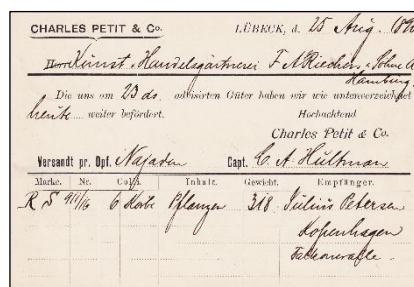 CHARLES PETIT & Co.
LÜBECK, d. 25 Aug. 189
Herrn Kunst & Handelsgärtnerei F A Riechers Söhne A
Hamburg
Die uns am 23 ds. advisirten Güter haben wir wie untenverzeichnet
heute weiter befördert.
Hochachtend
Charles Petit & Co.
Versandt pr. Dpf. Najaden Capt. C. A. Hultman
Marke. Nr. Colli. Inhalt. Gewicht. Empfänger.
R S 911/16 6 Körbe Pflanzen 318 Julius Petersen
Kopenhagen